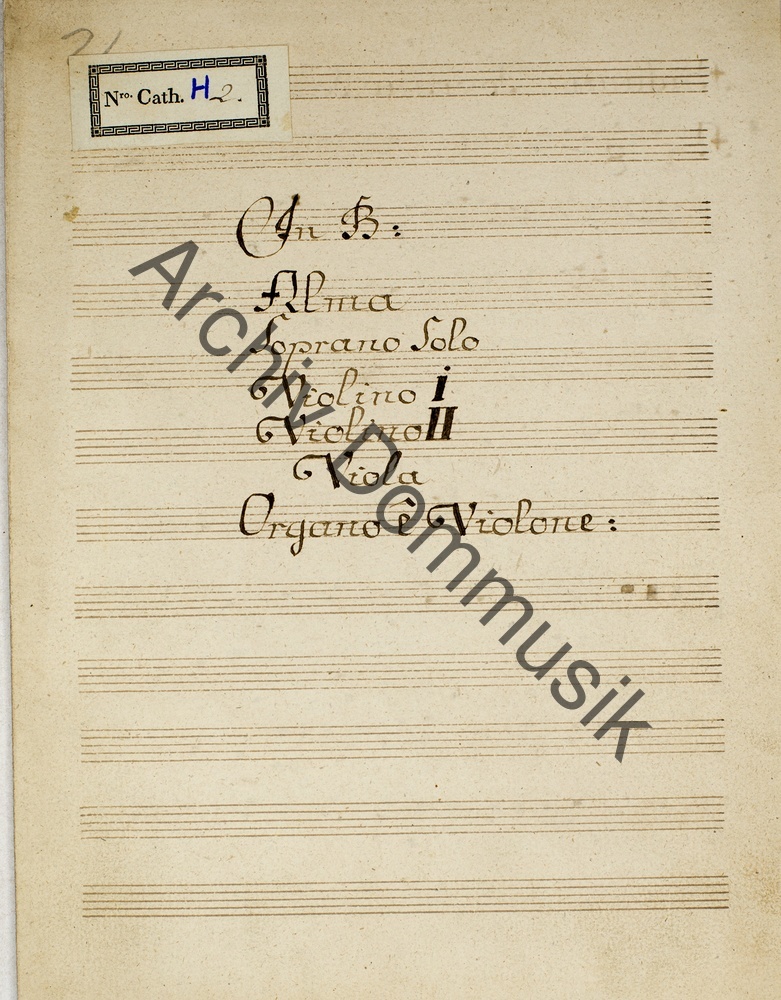 21
Nro. Cath. H 2.
In B:
Alma
Soprano Solo
Violino I
Violino II
Viola
Organo è Violone:
Archiv Dommusik